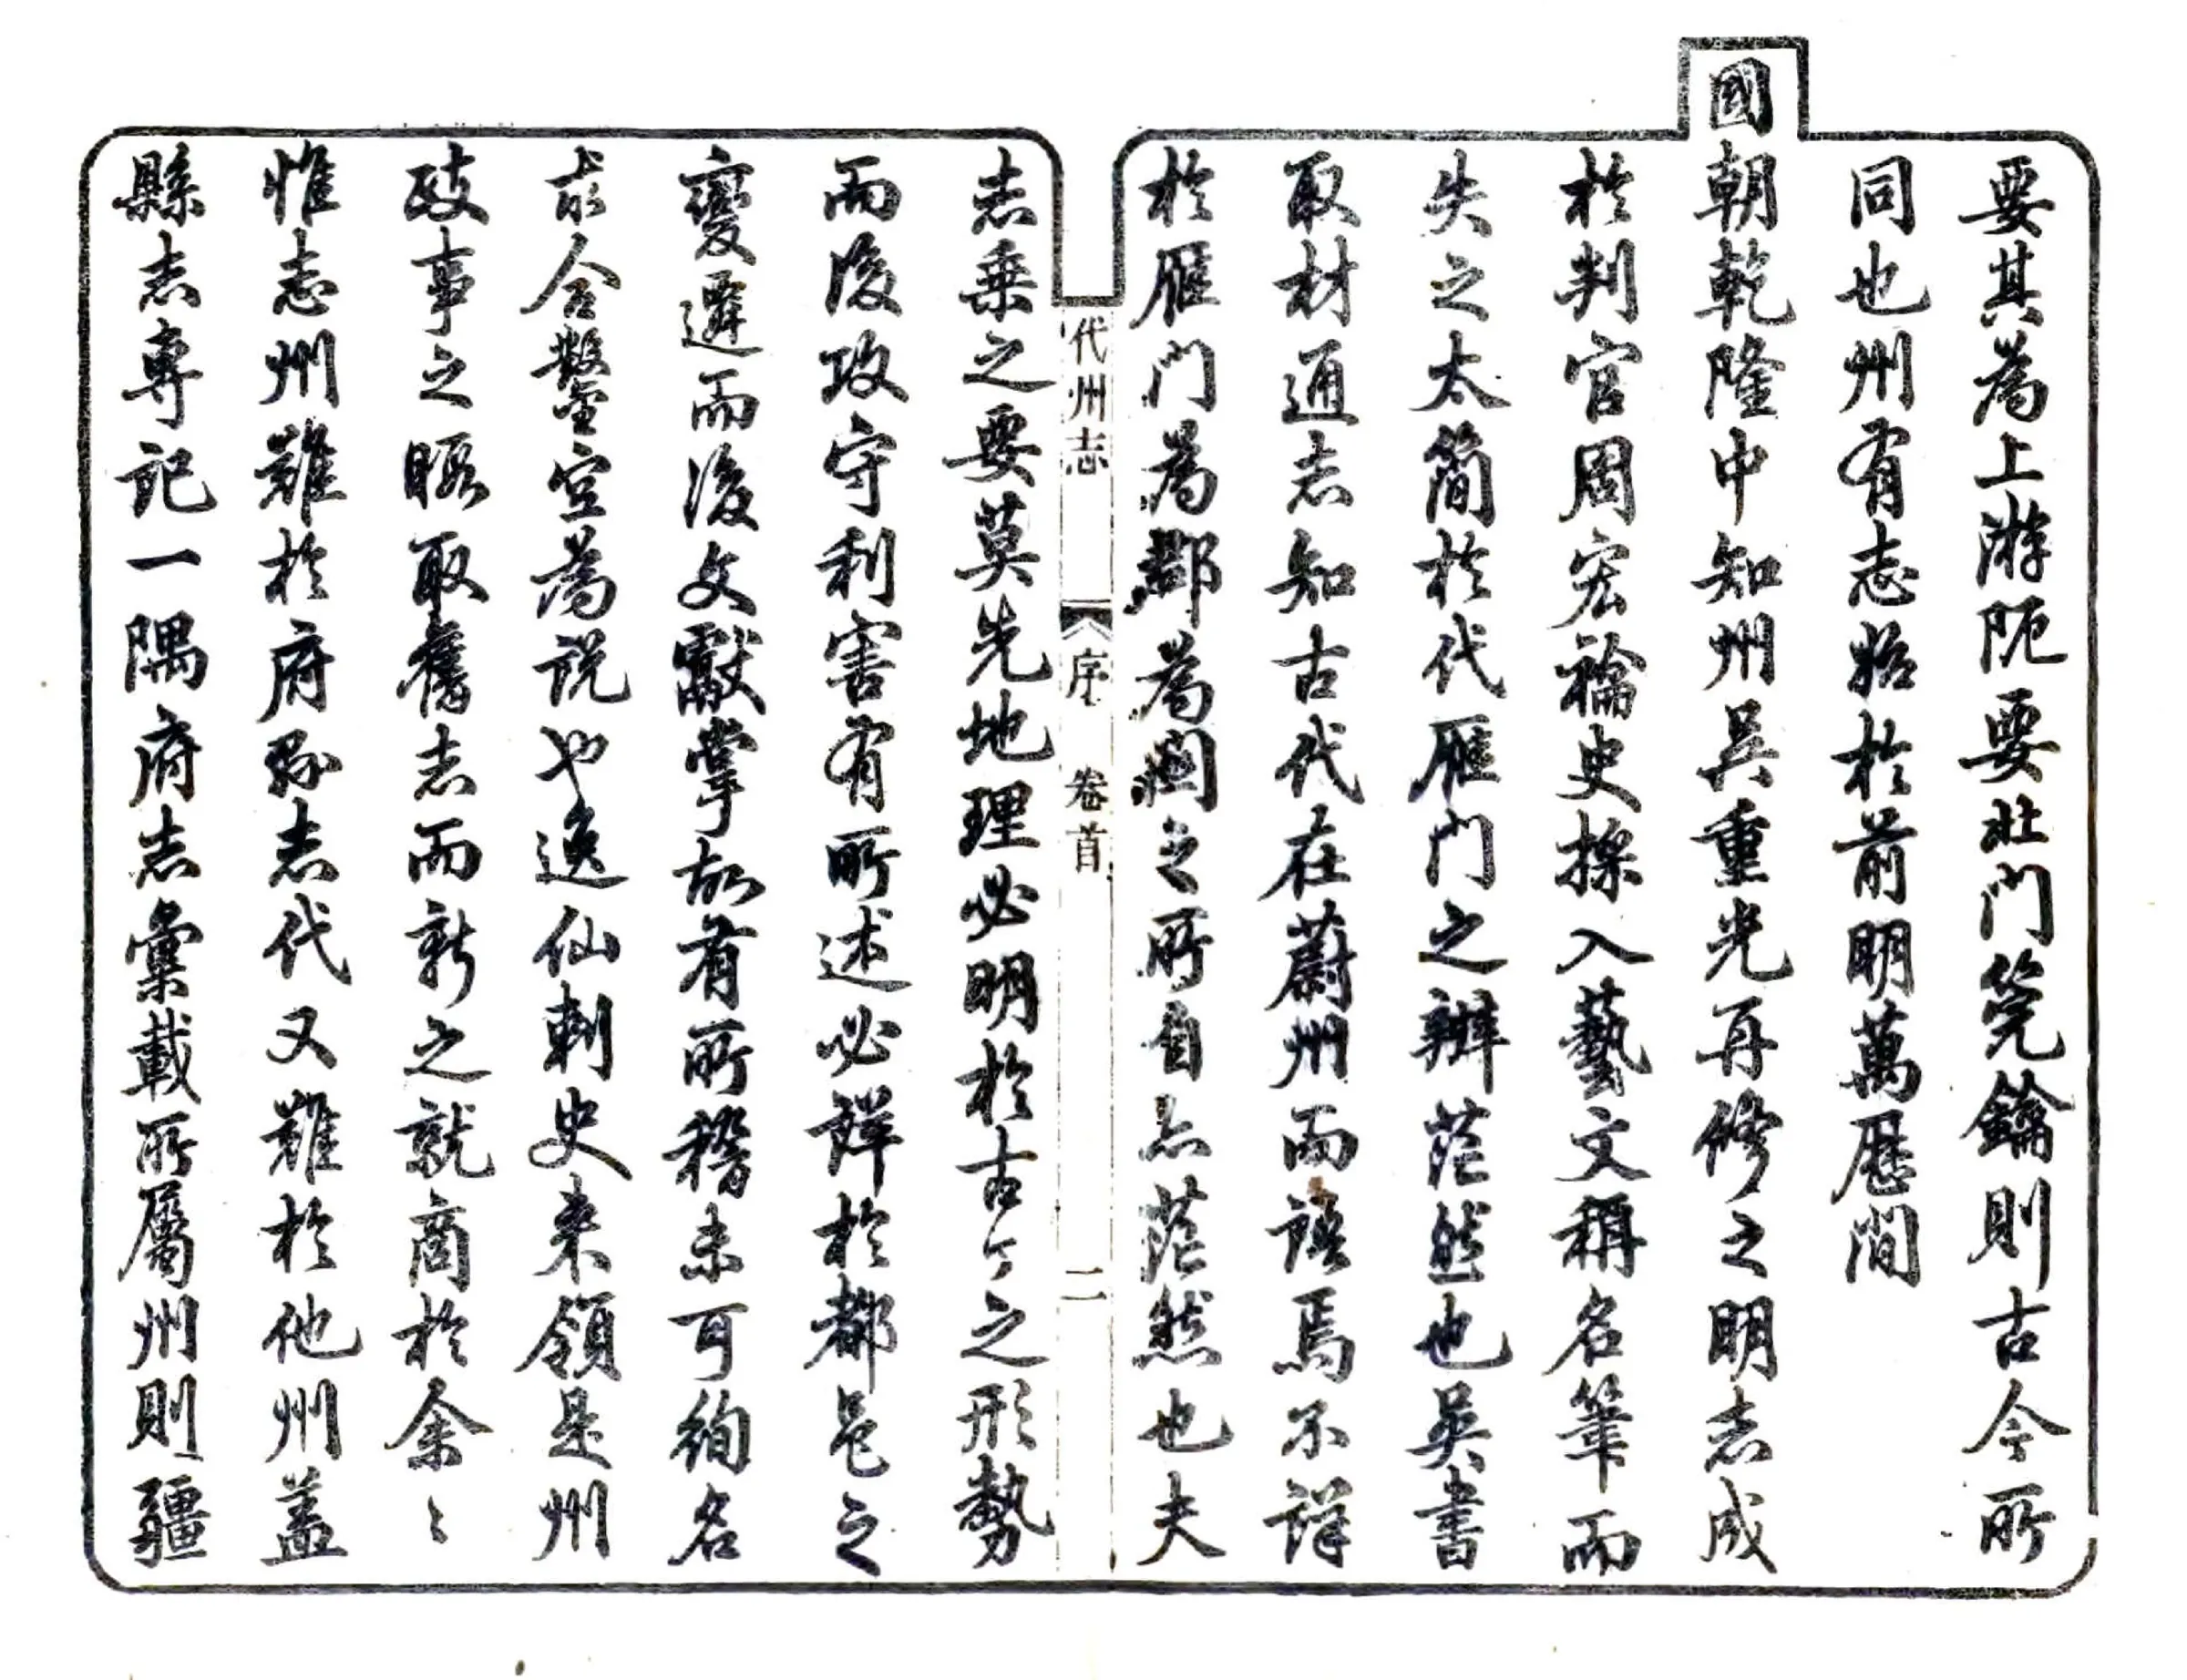 要其為上游阨要北門筦鑰則古今所
同也州有志始於前明萬歷間
國朝乾隆中知州吳重光再修之明志成
於判官周宏禴史採入藝文稱名筆而
失之太簡於代雁門之辨茫然也吳書
取材通志知古代在蔚州而語焉不詳
於雁門為郡為關之所自亦茫然也夫
代州志 序 卷首 二
志乘之要莫先地理必明於古今之形勢
而後攻守利害有所述必詳於都邑之
變遷而後文獻掌故有所稽未可徇名
求合鑿空為說也逸仙刺史來領是州
政事之暇取舊志而新之就商於余〻
惟志州難於府縣志代又難於他州蓋
縣志專記一隅府志彙載所屬州則疆